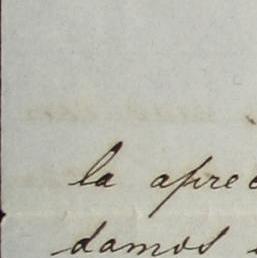 la apre
damos